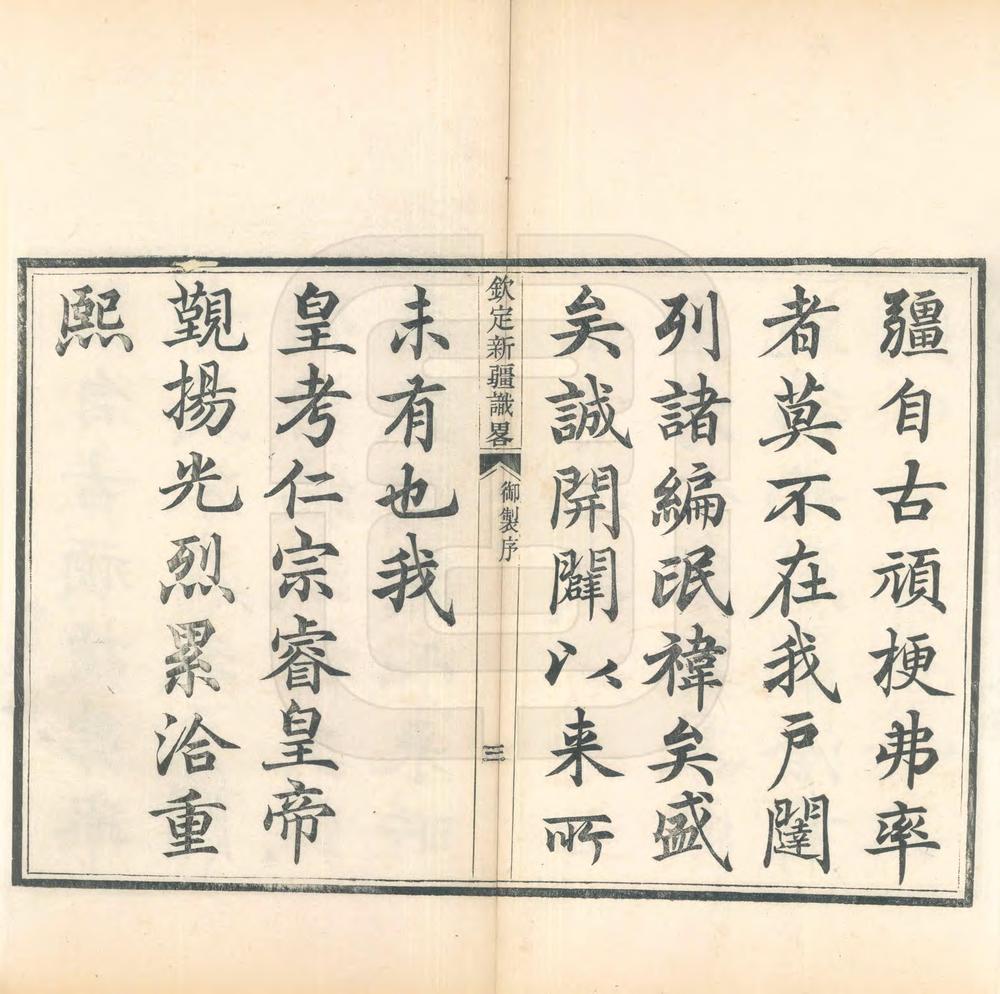 疆自古頑梗弗率
者莫不在我戶闥
列諸編氓禕矣盛
矣誠開闢以来所
欽定新疆識畧
御製序
三
未有也我
皇考仁宗睿皇帝
覲揚光烈累洽重
熙